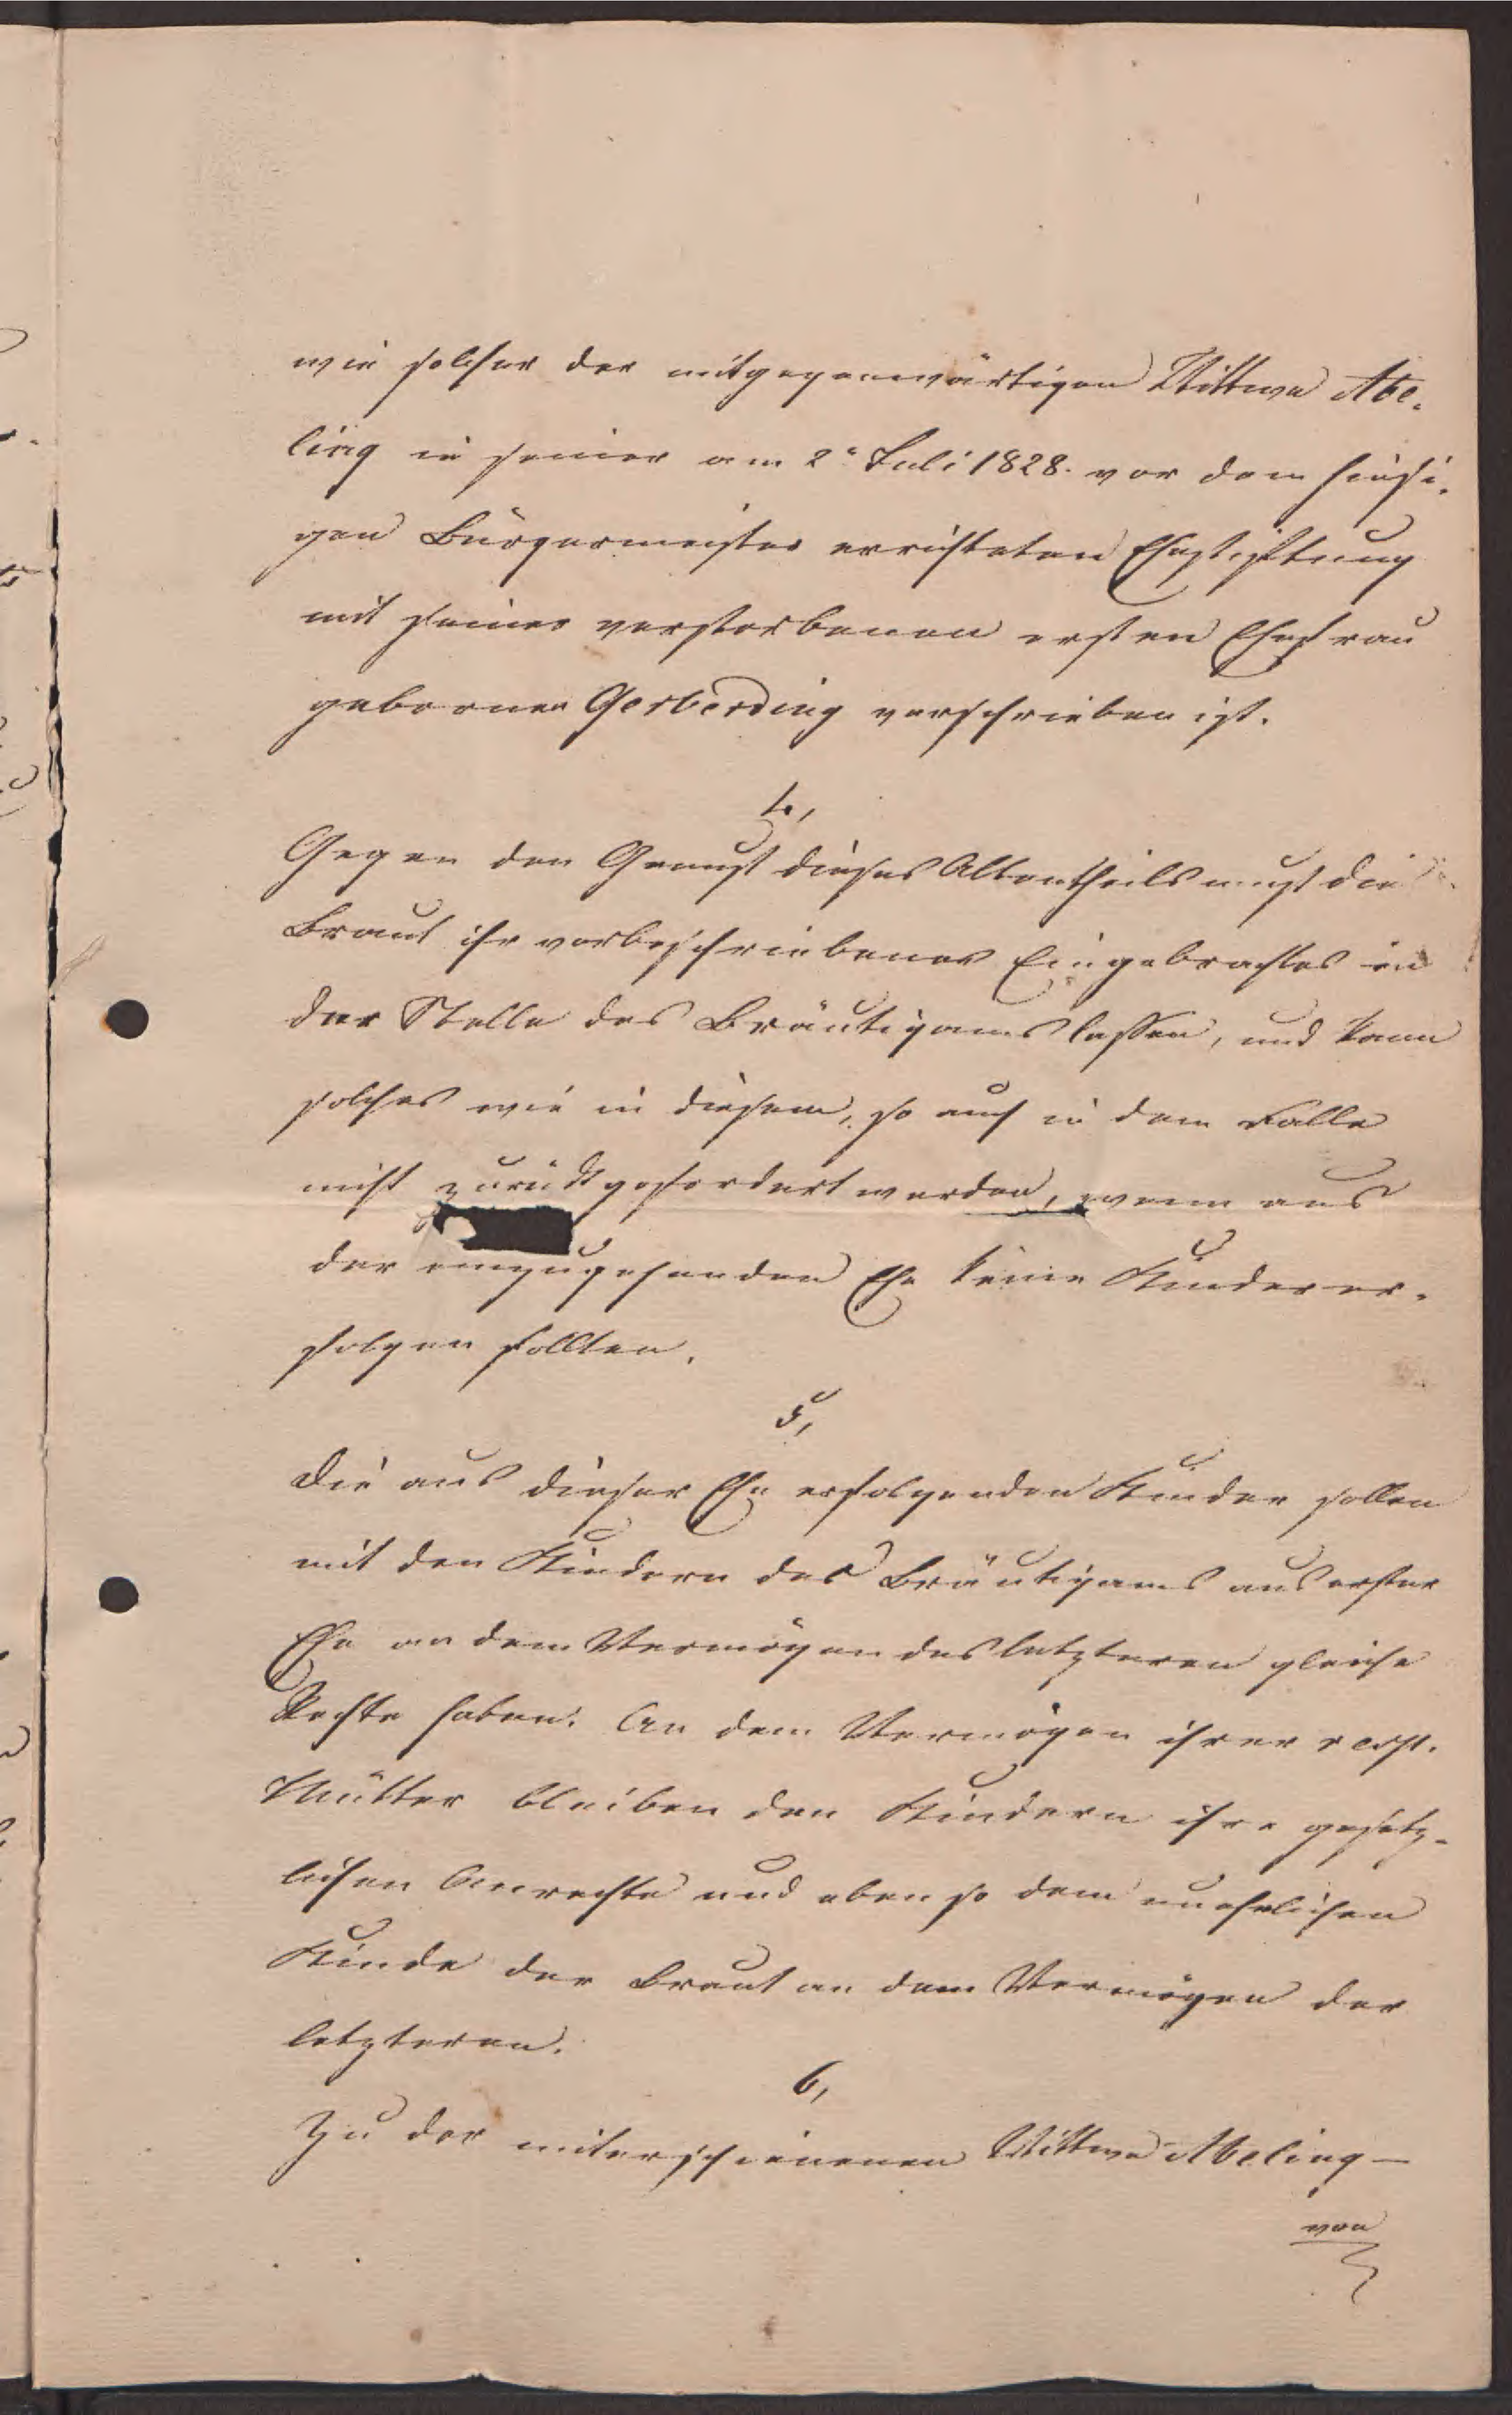 wie solcher der mitgegenwärtigen Wittwe Abe-
ling in seiner am 2n Juli 1828. vor dem hiesi-
gen Bürgermeister errichteten Ehestiftung
mit seiner verstorbenen ersten Ehefrau
gebornen Gerberding verschrieben ist.
4,
Gegen den Genuß dieses Altentheils muß die
Braut ihr vorbeschriebenes Eingebrachtes in
der Stelle des Bräutigams lassen, und kann
solches wie in diesem, so auch in dem Falle
nicht zurückgefordert werden, wenn aus
der einzugehenden Ehe keine Kinder er-
folgen sollten.
5,
Die aus dieser Ehe erfolgenden Kinder sollen
mit den Kindern des Bräutigams aus erster
Ehe an dem Vermögen des letzteren gleiche
Rechte haben. An dem Vermögen ihrer resp.
Mütter bleiben den Kindern ihre gesetz-
lichen Anrechte und eben so dem unehelichen
Kinde der Braut an dem Vermögen der
letzteren.
6,
Zu der miterschienenen Wittwe Abeling —
von